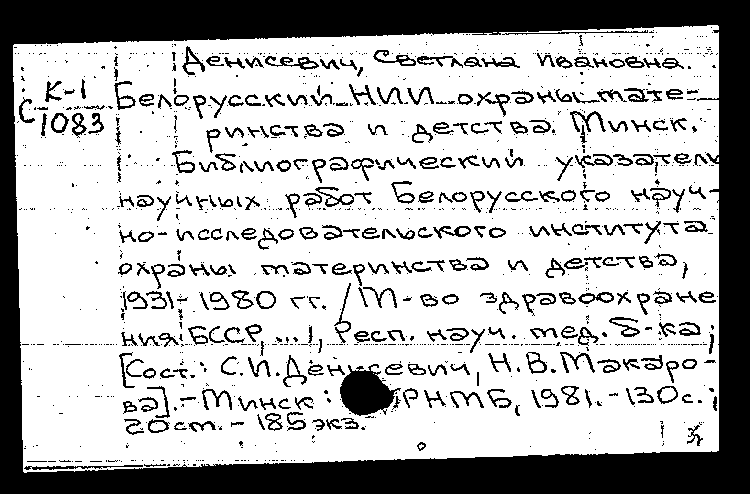 Денисевич, Светлана Ивановна.
К-1
С
1083
Белорусский НИИ охраны мате-
ринства и детства. Минск.
Библиографический указатель
научных работ Белорусского науч-
но-исследовательского института
охраны материнства и детства,
1931-1980 гг. / М-во здравоохране
ния БССР, ...1, Респ. науч. мед. б-ка;
[Сост.: С.И.Денисевич, Н.В.Макаро-
ва].-Минск: РНМБ, 1981.-130с.;
20см. - 185экз.